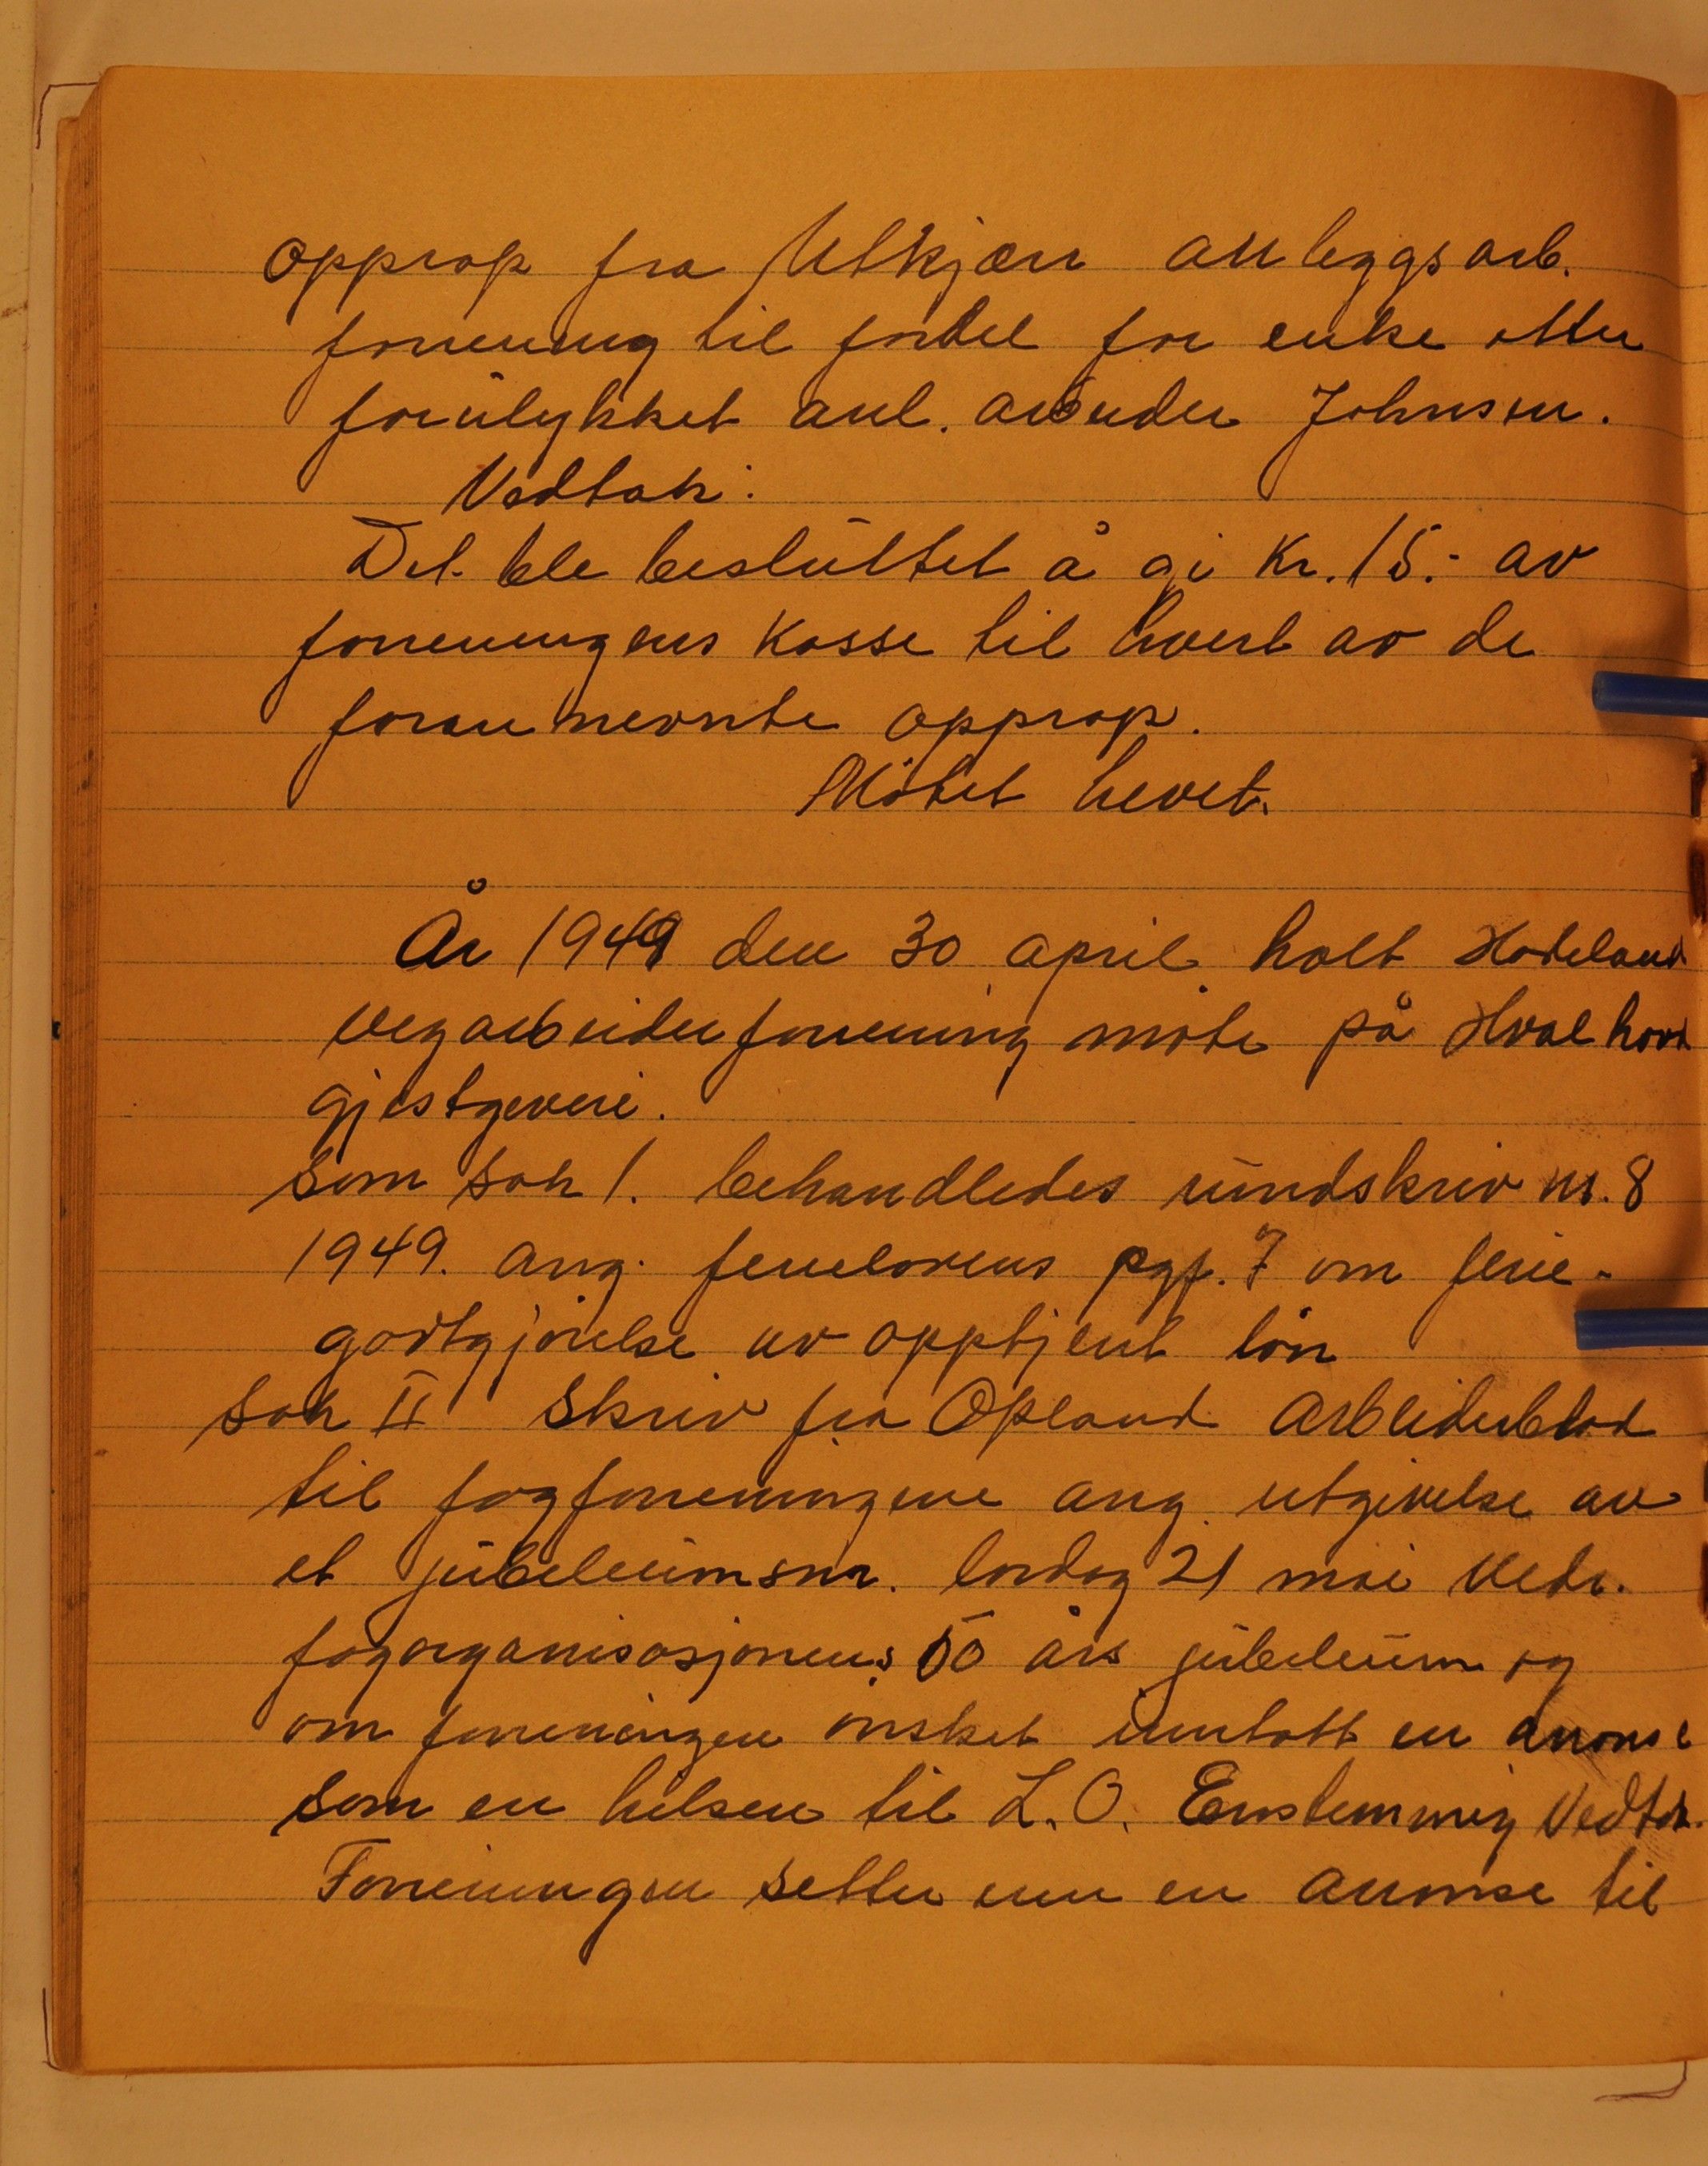 Opprop fra Utkjæn anleggsarb.
forening til fordel for enke etter
forulykket anl. arbeider Johnsen.
Vedtak:
Det ble besluttet å gi Kr. 15.- av
foreningens Kasse til hvert av de
foran nevnte opprop.
Møtet hevet.
År 1949 den 30 april holt Hadeland
vegarbeiderforening møte på Hvalhovd
gjestgeveri.
Som sak 1. behandledes rundskriv nr. 8
1949. ang. ferielovens pgf. 7 om ferie-
godtgjørelse av opptjent løn
Sak II Skriv fra Opland Arbeiderblad
til fagforeningene ang. utgivelse av
et jubeleumsnr. lørdag 21 mai vedr.
fagorganisasjonens 50 års jubeleum og
om foreningen ønsket inntatt en anonse
som en hilsen til L.O. Enstemmig Vedtak.
Foreningen setter inn en anonse til